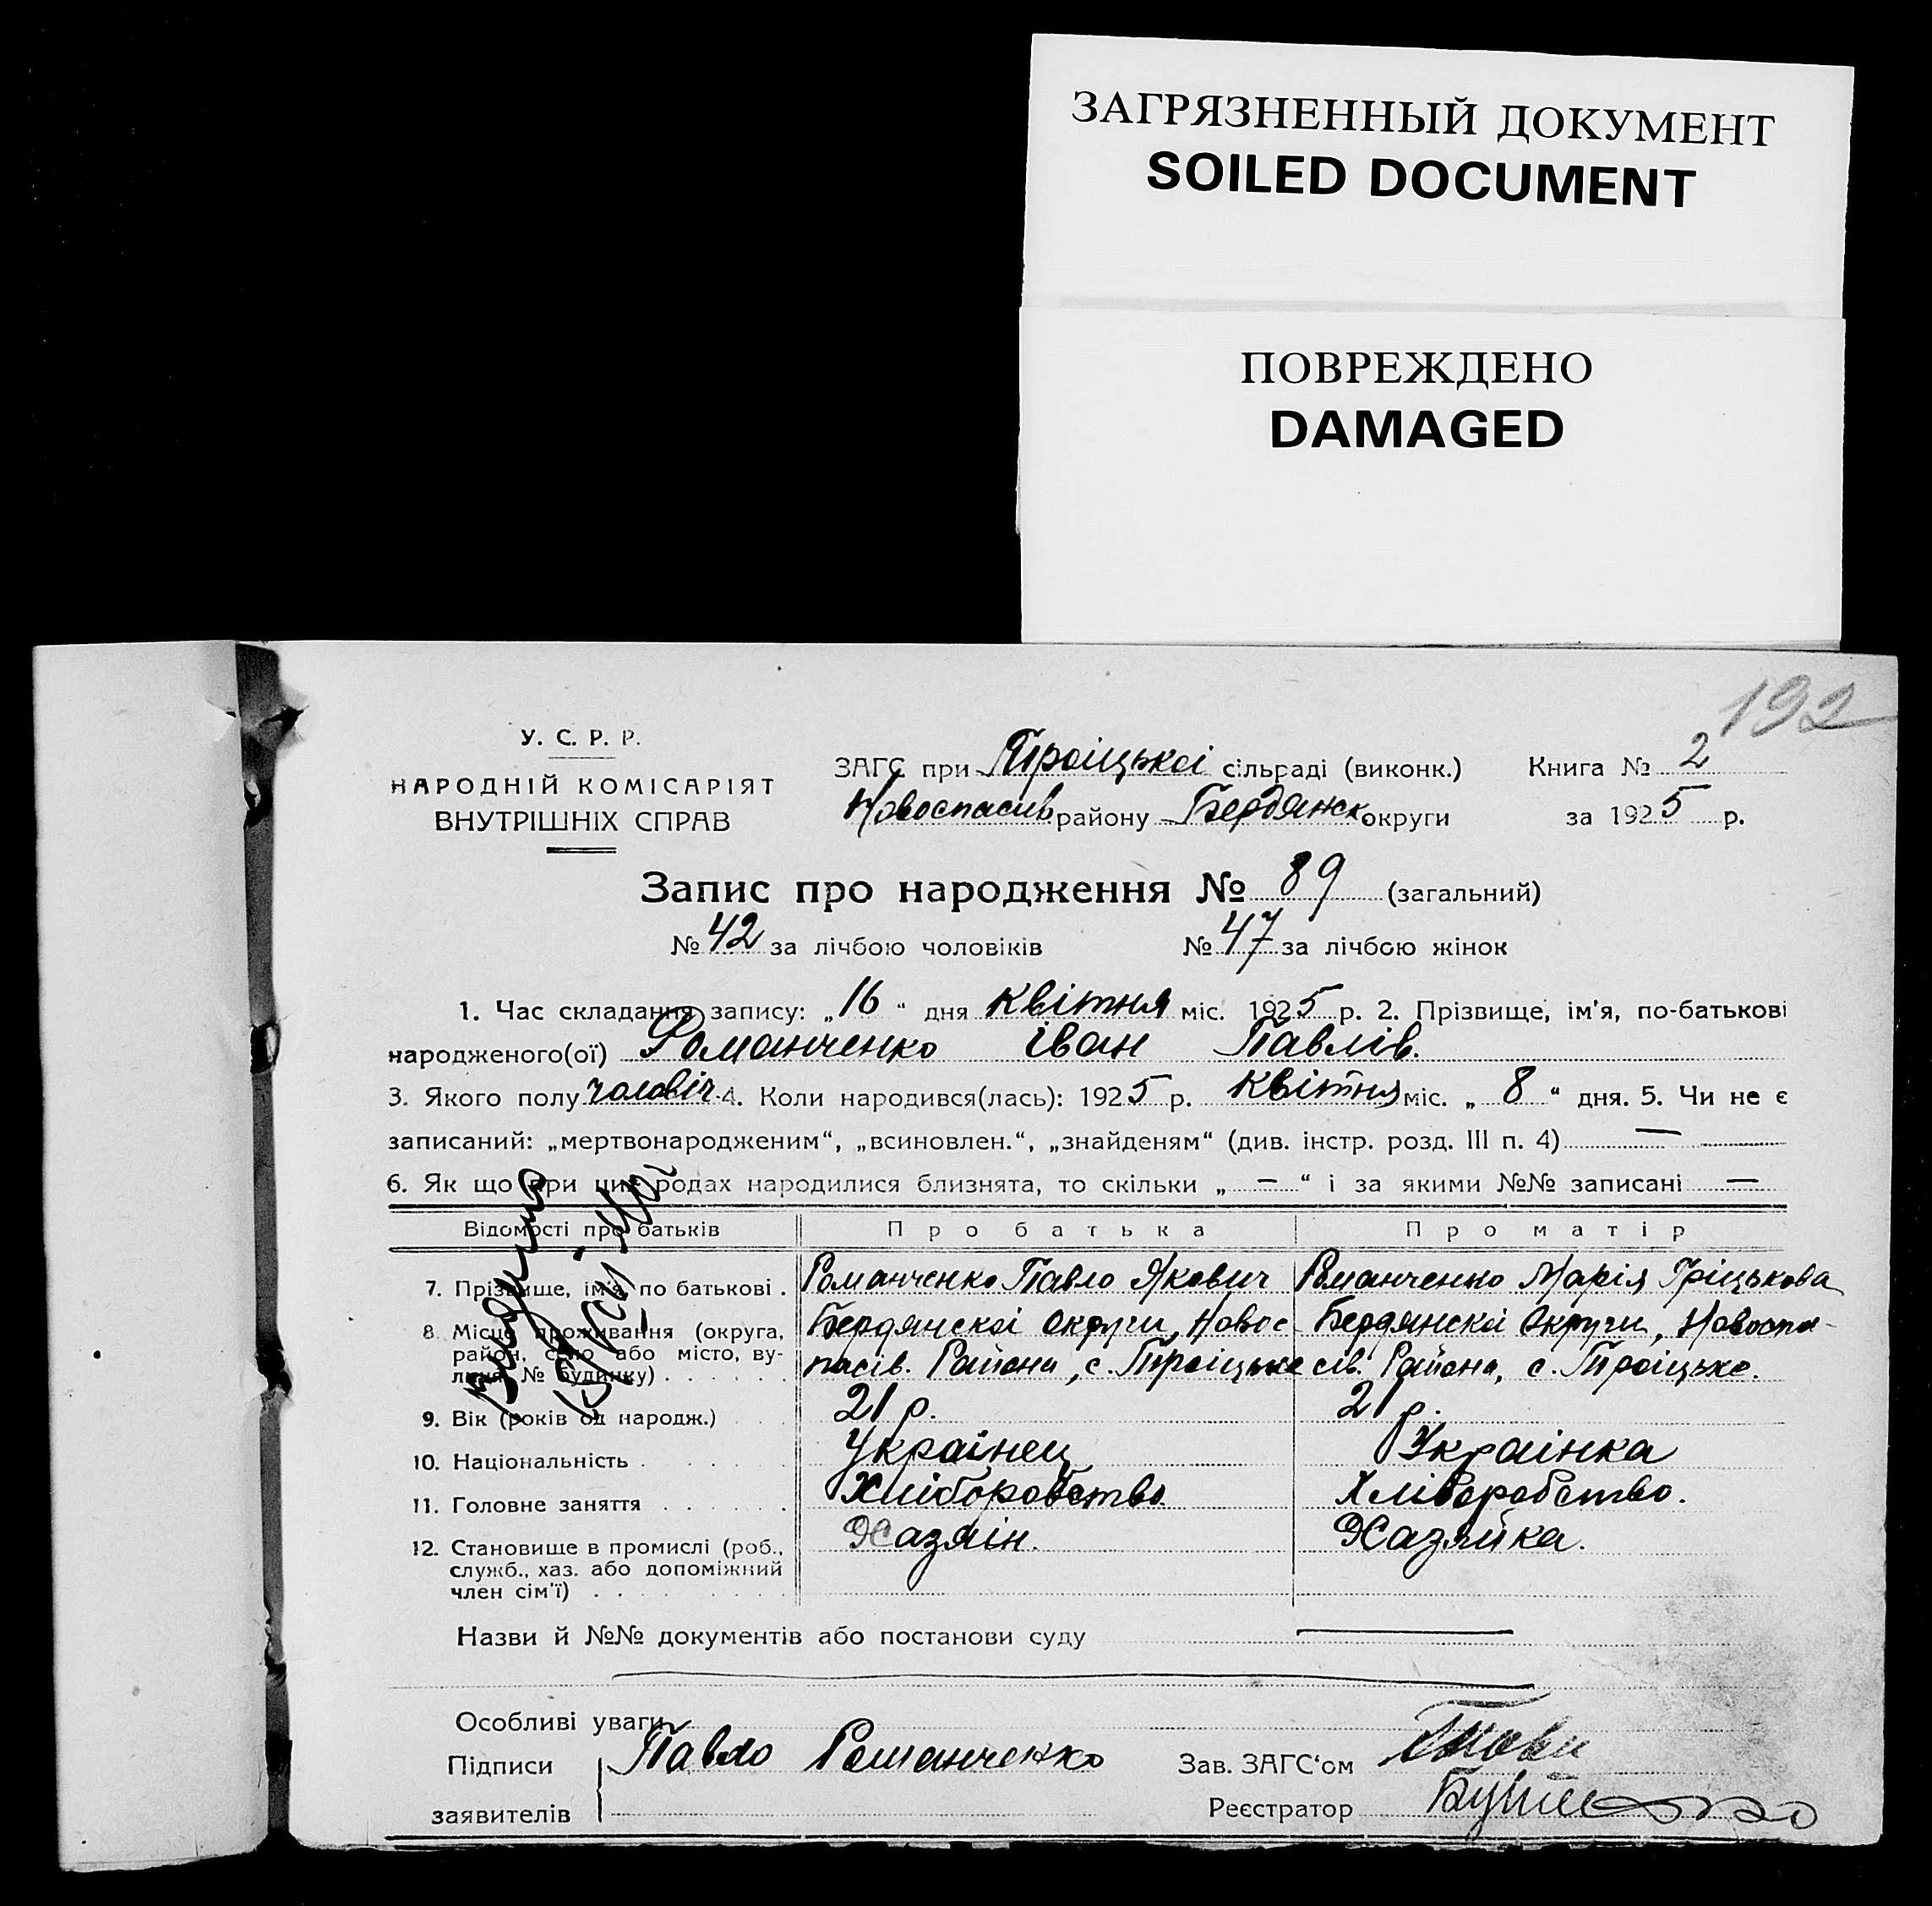 ЗАГРЯЗНЕННЫЙ ДОКУМЕНТ
SOILED DOCUMENT
ПОВРЕЖДЕНО
DAMAGED
192
У. С. Р. Р.
НАРОДНІЙ КОМІСАРІЯТ
ВНУТРІШНІХ СПРАВ
ЗАГС при Троіцькоі сільраді (виконк.) Книга № 2
Новоспасів району Бердянск округи за 1925 р.
Запис про народження № 89 (загальний)
№ 42 за лічбою чоловіків № 47 за лічбою жінок
1. Час складання запису: „16“ дня квітня міс. 1925 р. 2. Прізвище, ім'я, по-батькові
народженого(ої) Романченко іван Павлів.
3. Якого полу чоловіч. 4. Коли народився(лась): 1925 р. квітня міс. „8“ дня. 5. Чи не є
записаний: „мертвонародженим“, „всиновлен.“, „знайденям“ (див. інстр. розд. III п. 4) —
6. Як що при цих родах народилися близнята, то скільки „—“ і за якими №№ записані —
Відомості про батьків Про батька Про матір
7. Прізвище, ім'я, по батькові . Романченко Павло Якович Романченко Марія Гріцькова
8. Місце проживання (округа, Бердянскоі Округи, Новос- Бердянскоі Округи, Новоспа-
район, село або місто, ву- пасів. Района, с. Троіцьке сів. Района, с. Троіцьке.
лиця, № будинку) . . . . . .
9. Вік (років од народж.) 21 р. 21 р.
10. Національність . Українец Українка
11. Головне заняття . . . . . Хліборобство Хліборобство.
12. Становище в промислі (роб., Хазяін. Хазяйка.
служб., хаз. або допоміжний
член сім'ї) . . . . . . . .
Назви й №№ документів або постанови суду
Особливі уваги
Підписи Павло Романченко Зав. ЗАГС'ом
заявителів Реєстратор